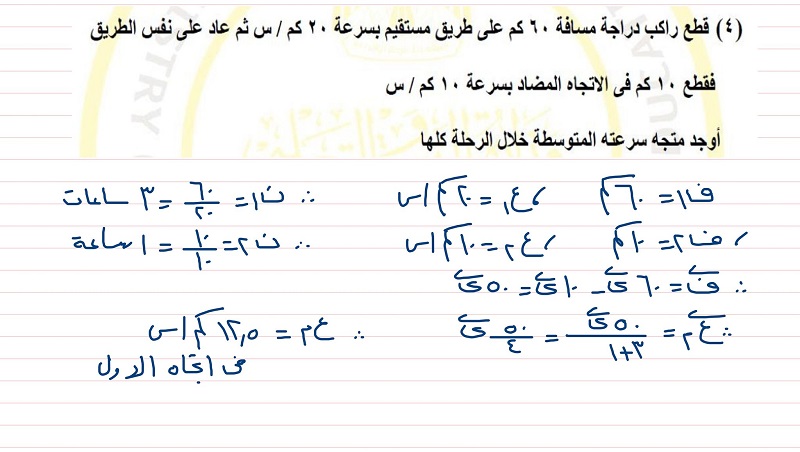 (٤) قطع راكب دراجة مسافة ٦٠ كم على طريق مستقيم بسرعة ٢٠ كم / س ثم عاد على نفس الطريق
فقطع ١٠ كم فى الاتجاه المضاد بسرعة ١٠ كم / س
أوجد متجه سرعته المتوسطة خلال الرحلة كلها
ف١ = ٦٠ كم ، ع١ = ٢٠ كم/س ∴ ن١ = ٦٠/٢٠ = ٣ ساعات
، ف٢ = ١٠ كم ، ع٢ = ١٠ كم/س ∴ ن٢ = ١٠/١٠ = ١ ساعة
∴ ف = ٦٠ ى - ١٠ ى = ٥٠ ى
∴ ع م = ٥٠ ى / ٣+١ = ٥٠/٤ ى ∴ ع م = ١٢,٥ كم/س
فى اتجاه الاول